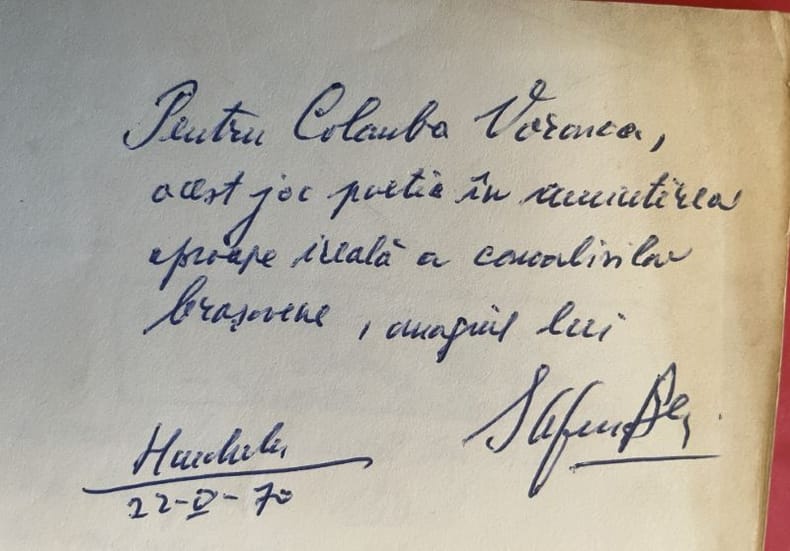 Pentru Colomba Voronca,
acest joc poetic în amintirea
aproape ireală a
brașovene, omagiul lui
Stefan
Honolulu
22-V-70